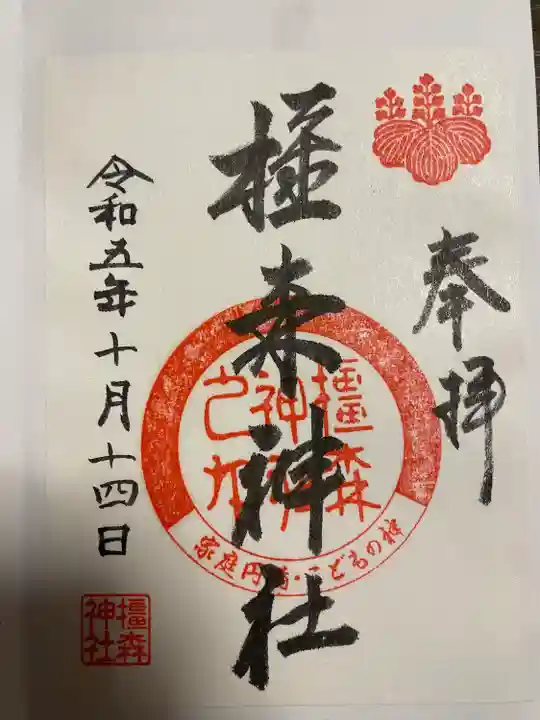 奉拝
橿森神社
令和五年十月十四日
橿森
神社
家庭円満・こどもの神
橿森
神社